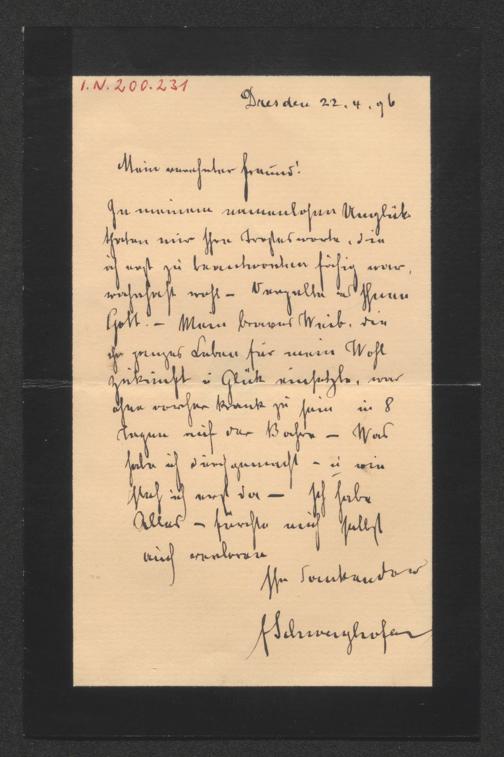 I.N. 200.231
Dresden 22.4.96
Mein verehrter Freund!
In meinem namenlosen Unglück
thaten mir Ihre Trostesworte, die
ich erst zu beantworten fähig war,
wahrhaft wohl – Vergelte es Ihnen
Gott. – Mein braves Weib, die
ihr ganzes Leben für mein Wohl
Zukunft u Glück einsetzte, war
ohne vorher krank zu sein in 8
Tagen auf der Bahre – Was
habe ich durchgemacht – u wie
steh ich erst da – Ich habe
Alles – fürchte mich selbst
auch verloren
Ihr dankender
FSchweighofer